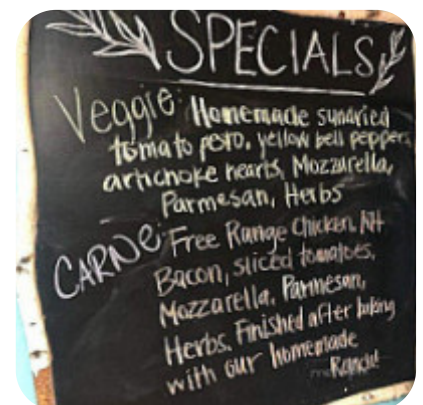 SPECIALS
Veggie: Homemade sundried
tomato pesto, yellow bell peppers,
artichoke hearts, Mozzarella,
Parmesan, Herbs
CARNE: Free Range Chicken, NH
Bacon, sliced tomatoes,
Mozzarella, Parmesan,
Herbs. Finished after baking
with our homemade
Ranch!